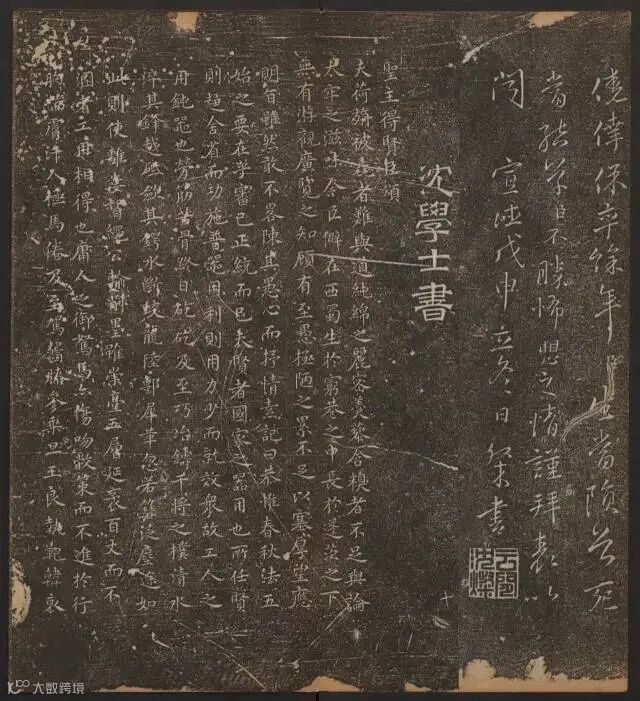 僥倖保卒餘年生當隕首死
當結草臣不勝怖懼之情謹拜表以
聞 宣德戊申立冬日粲書
雲間沈粲
沈學士書
聖主得賢臣頌
夫荷旃被毳者難與道純綿之麗密羹藜含糗者不足與論
太牢之滋味今臣僻在西蜀生於窮巷之中長於蓬茨之下
無有游觀廣覽之知顧有至愚極陋之累不足以塞厚望應
明旨雖然敢不畧陳其愚心而抒情素記曰恭惟春秋法五
始之要在乎審己正統而已夫賢者國家之器用也所任賢
則趨舍省而功施普器用利則用力少而就效衆故工人之
用鈍器也勞筋苦骨終日矻矻及至巧冶鑄干將之樸清水
淬其鋒越砥斂其鍔水斷蛟龍陸剸犀革忽若篲泛塵塗如
此則使離婁督繩公輸削墨雖崇臺五層延袤百丈而不
溷者工用相得也庸人之御駑馬亦傷吻敝策而不進於行
胸喘膚汗人極馬倦及至駕齧膝參乘旦王良執靶韓哀
十
大数跨境